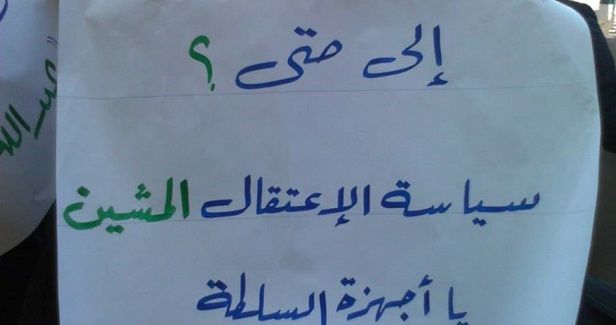 إلى متى ؟
سياسة الإعتقال المشين
يا أجهزة السلطة